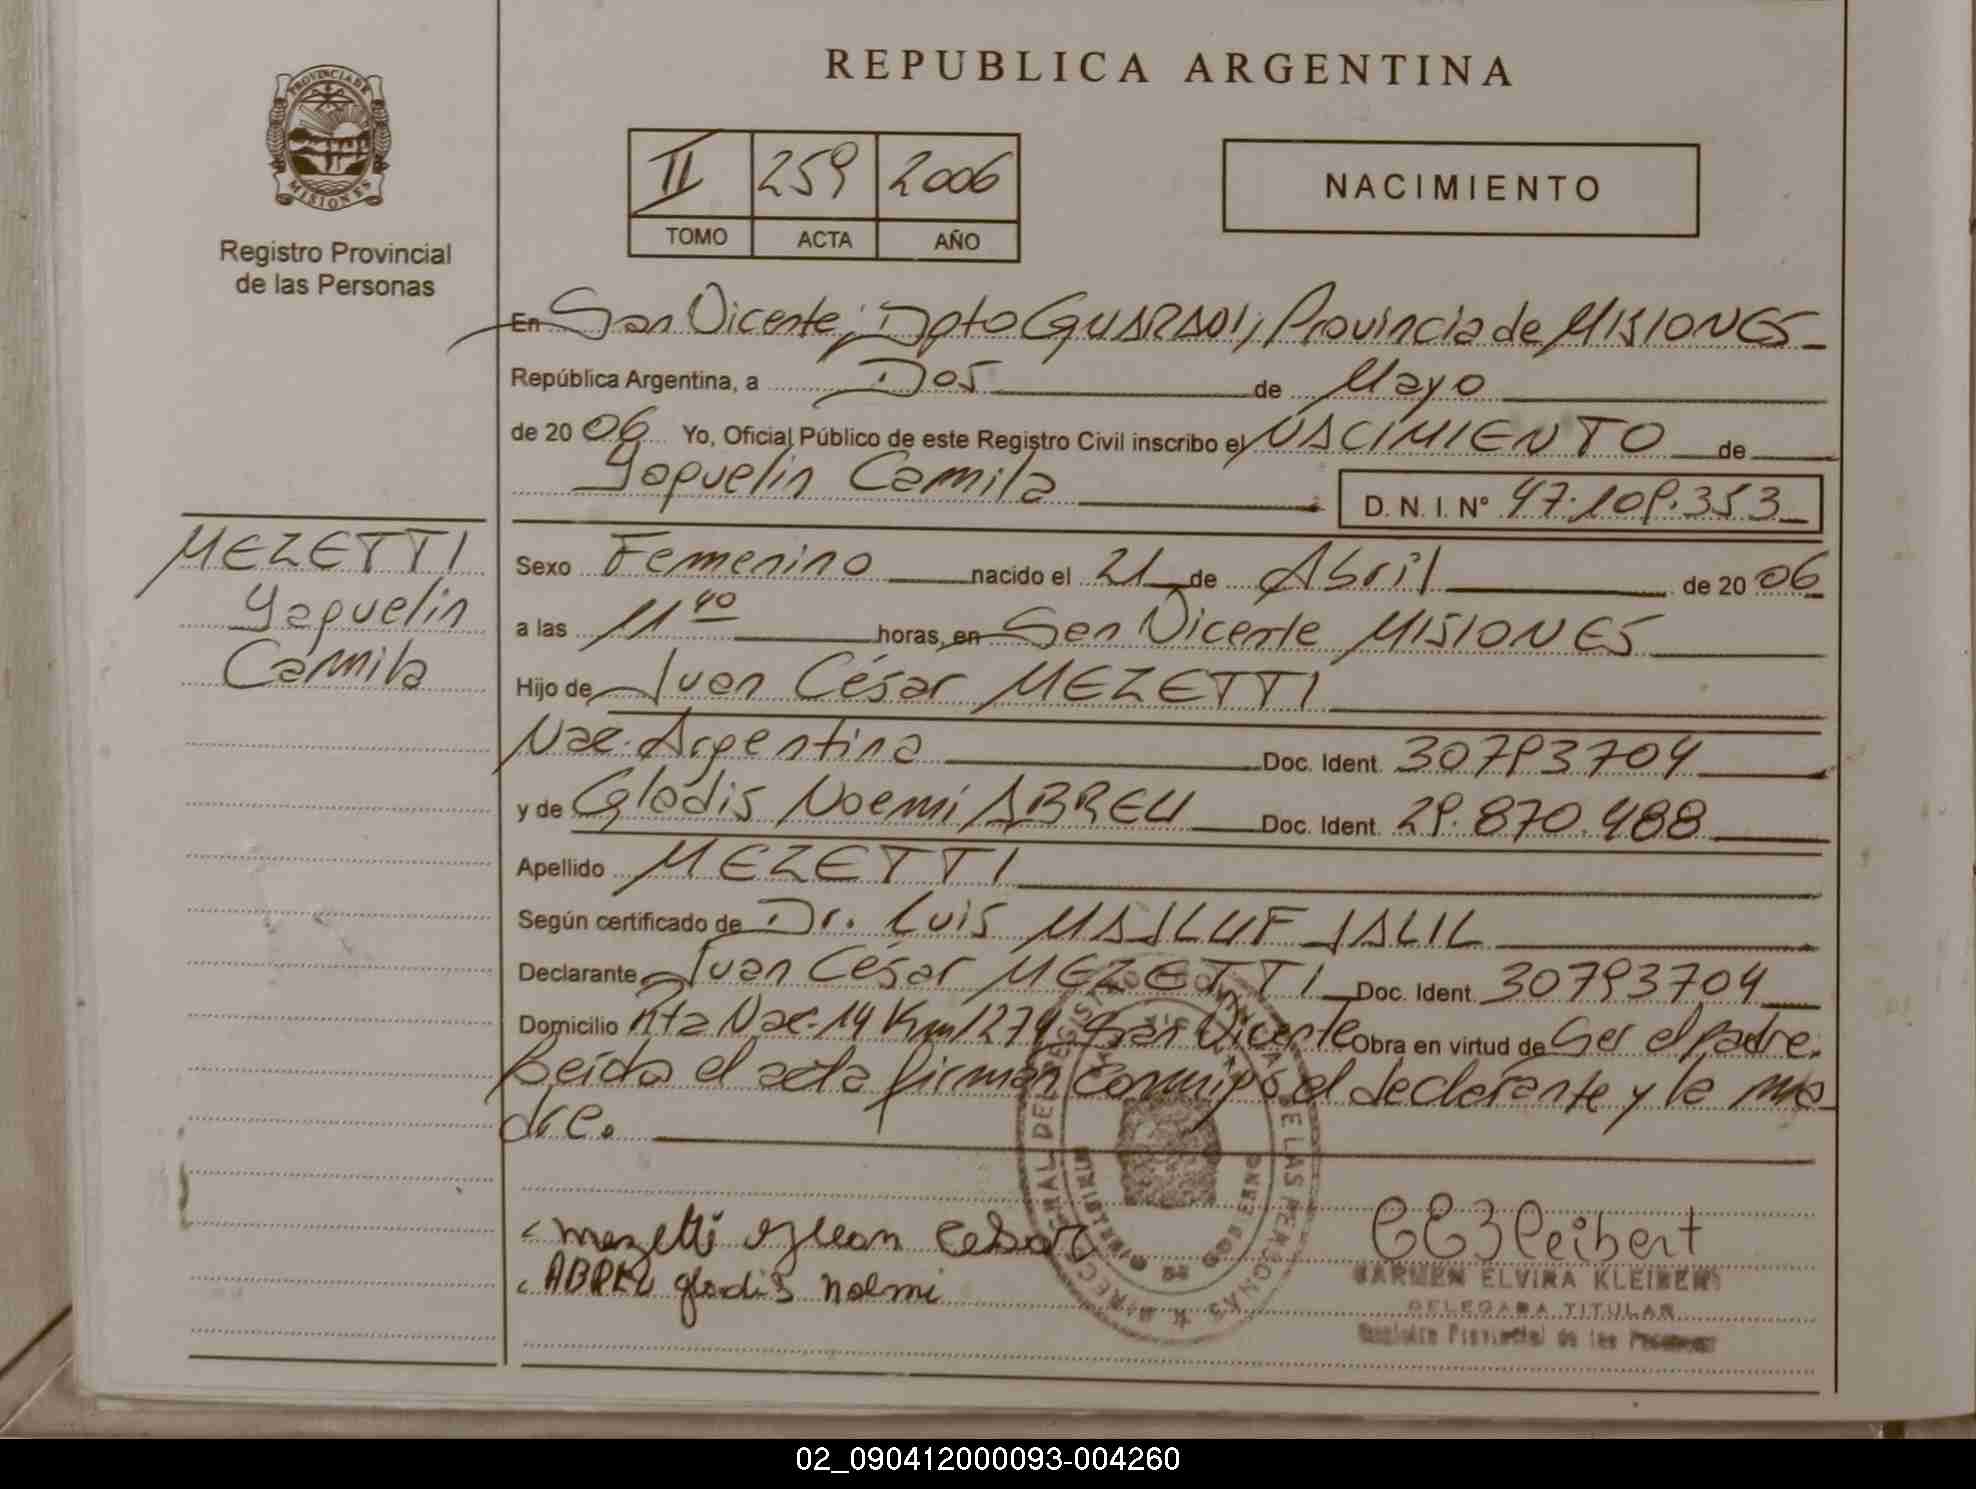 REPUBLICA ARGENTINA
PROVINCIA DE
MISIONES
Registro Provincial
de las Personas
II 259 2006
TOMO ACTA AÑO
NACIMIENTO
En San Vicente, Dpto GUARANI, Provincia de MISIONES
República Argentina, a Dos de Mayo
de 2006 Yo, Oficial Público de este Registro Civil inscribo el NACIMIENTO de
Yaquelin Camila D. N. I. N° 47.109.353
MEZETTI
Yaquelin
Camila
Sexo Femenino nacido el 21 de Abril de 2006
a las 11 40 horas, en San Vicente MISIONES
Hijo de Juan César MEZETTI
Nac. Argentina Doc. Ident. 30793704
y de Gladis Noemi ABREU Doc. Ident. 29.870.488
Apellido MEZETTI
Según certificado de Dr. Luis MAJLUF JALIL
Declarante Juan César MEZETTI Doc. Ident. 30793704
Domicilio Rta Nac. 14 Km 1279 San Vicente Obra en virtud de Ser el padre.
Leída el acta firman conmigo el declarante y la ma
dre.
Mezetti Juan Cesar
ABREU gladis Noemi
CARMEN ELVIRA KLEIBERT
DELEGADA TITULAR
Registro Provincial de las Personas
02_090412000093-004260